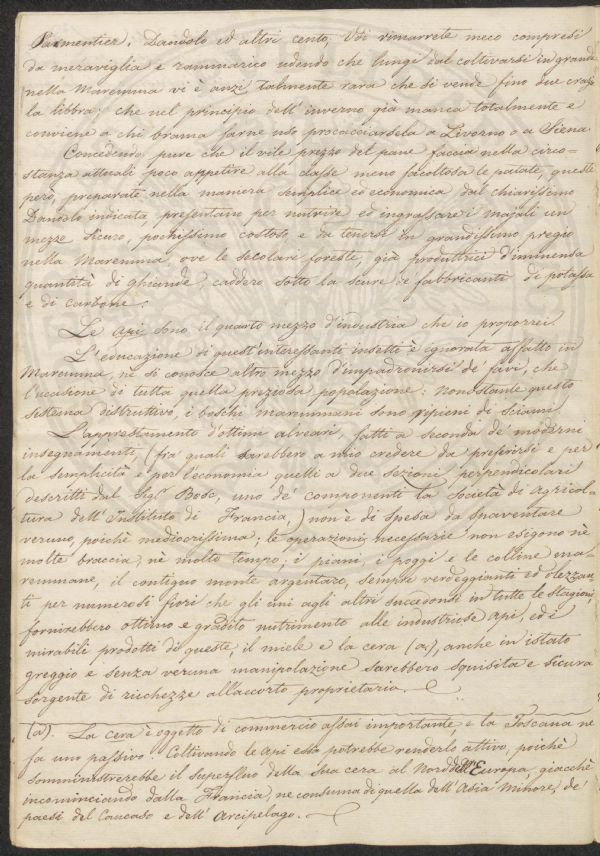 Parmentier, Dandolo ed altri cento; Voi rimarrete meco compresi
da meraviglia e rammarico udendo che lungi dal coltivarsi in grande
nella Maremma vi è anzi talmente rara che si vende fino due crazie
la libbra; che nel principio dell'inverno già manca totalmente e
conviene a chi brama farne uso procacciarsela a Livorno o a Siena
Concedendo pure che il vile prezzo del pane faccia nelle circo=
stanze attuali poco appetire alla classe meno facoltosa le patate, queste
però, preparate nella maniera semplice ed economica dal chiarissimo
Dandolo indicata, presentano per nutrire ed ingrassare i majali un
mezzo sicuro, pochissimo costoso e da tenersi in grandissimo pregio
nella Maremma, ove le secolari foreste, già produttrici d'immensa
quantità di ghiande, caddero sotto la scure de' fabbricanti di potassa
e di carbone.
Le api sono il quarto mezzo d'industria che io proporrei.
L'educazione di quest'interessanti insetti è ignorata affatto in
Maremma, nè si conosce altro mezzo d'impadronirsi de' favi, che
l'uccisione di tutta quella preziosa popolazione: nonostante questo
sistema distruttivo, i boschi maremmani sono ripieni di sciami
L'apprestamento d'ottimi alveari, fatti a seconda de' moderni
insegnamenti, (fra' quali sarebbero a mio credere da preferirsi e per
la semplicità e per l'economia quelli a due sezioni perpendicolari
descritti dal Sigr Bosc, uno de' componenti la Società di Agricol=
tura dell'Instituto di Francia,) non è di spesa da spaventare
veruno, poichè mediocrissima; le operazioni necessarie non esigono nè
molte braccia, nè molto tempo; i piani, i poggi e le colline ma=
remmane, il contiguo monte argentaro, sempre verdeggianti ed olezzan=
ti per numerosi fiori che gli uni agli altri succedonsi in tutte le stagioni,
fornirebbero ottimo e gradito nutrimento alle industriose api, ed i
mirabili prodotti di queste, il miele e la cera (a), anche in istato
greggio e senza veruna manipolazione sarebbero squisita e sicura
sorgente di ricchezze all'accorto proprietario.
(a). La cera è oggetto di commercio assai importante, e la Toscana ne
fa uno passivo. Coltivando le api essa potrebbe renderlo attivo, poichè
somministrerebbe il superfluo della sua cera al Nord dell'Europa, giacchè
incominciando dalla Francia, ne consuma di quella dell'Asia Minore, de'
paesi del Caucaso e dell'Arcipelago.